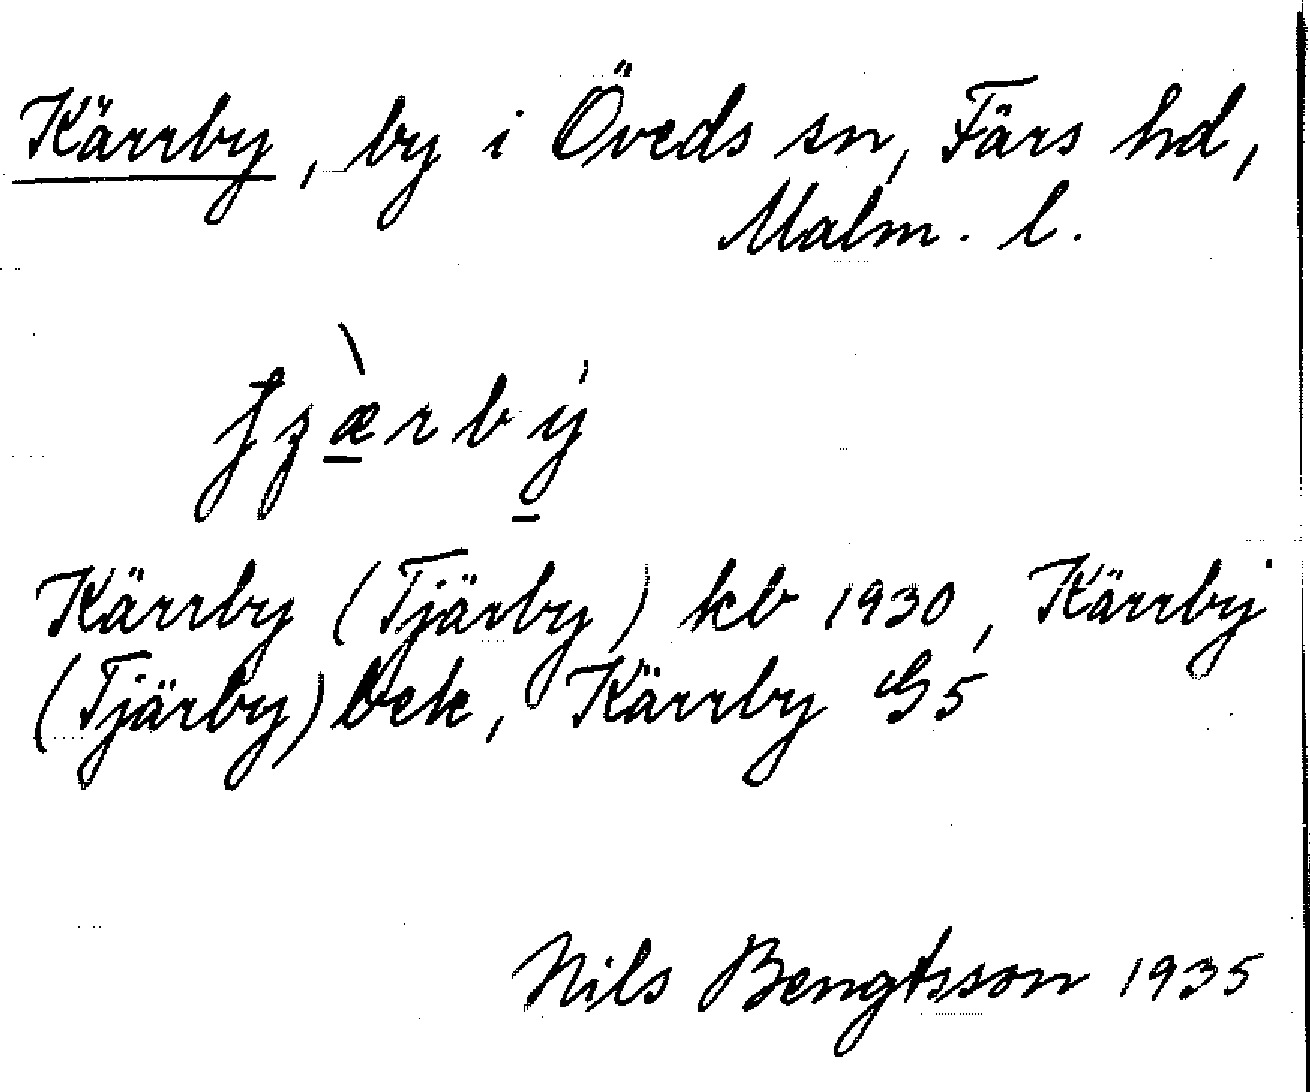 Kärrby, by i Öveds sn, Färs hd,
Malm. l.
Kärrby (Tjärby) kb 1930, Kärrby
(Tjärby) bek, Kärrby G5
Nils Bengtsson 1935